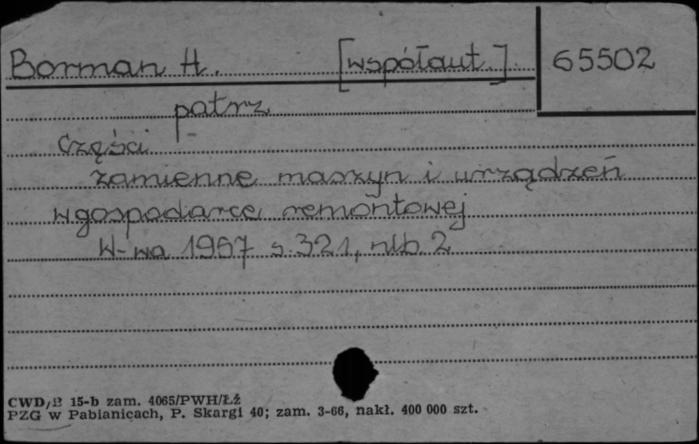 Borman H. [współaut.] 65502
patrz
Części
zamienne maszyn i urządzeń
w gospodarce remontowej
W-wa 1967 s. 321, nlb. 2
CWD/B 15-b zam. 4065/PWH/ŁŹ
PZG w Pabianicach, P. Skargi 40; zam. 3-66, nakł. 400 000 szt.